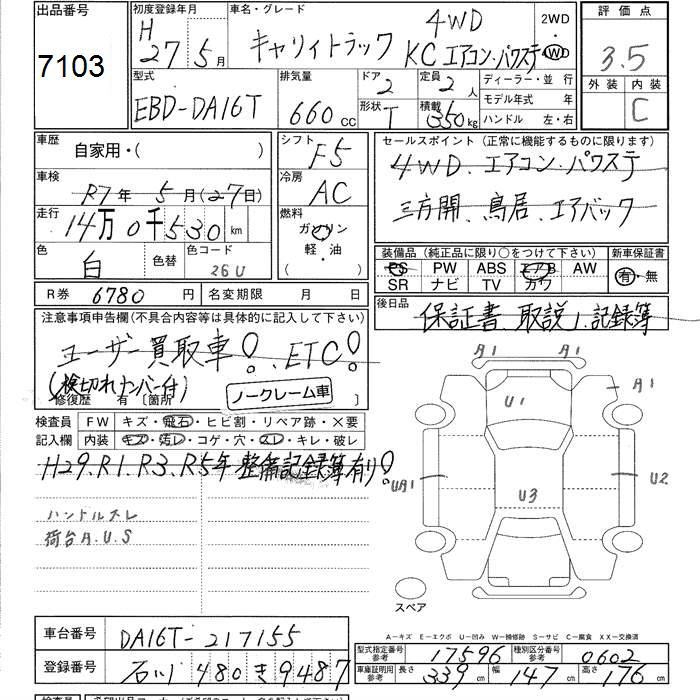 出品番号
7103
初度登録年月
H 27年 5月
車名・グレード
キャリイトラック
4WD
KC エアコン・パワステ
2WD
4WD
評価点
3.5
外装
内装
C
型式
EBD-DA16T
排気量
660 CC
ドア
2
形状
T
定員
2 人
積載
350 kg
ディーラー・並行
モデル年式 年
ハンドル 左・右
車歴
自家用・( )
車検
R7年 5月 (27日)
走行
14万0千530 km
色
白
色替
色コード
26U
シフト
F5
冷房
AC
燃料
ガソリン
軽・油
( )
セールスポイント (正常に機能するものに限ります)
4WD、エアコン・パワステ
三方開、鳥居、エアバック
装備品 (純正品に限り○をつけて下さい)
PS PW ABS エアB AW
SR ナビ TV カワ
新車保証書
有・無
R券 6780 円
名変期限 月 日
後日品
保証書、取説1、記録簿
注意事項申告欄(不具合内容等は具体的に記入して下さい)
ユーザー買取車!、ETC!
(検切れナンバー付)
ノークレーム車
修復歴 有 〔箇所 〕
検査員
記入欄
FW キズ・飛石・ヒビ割・リペア跡・×要
内装 キズ・汚レ・コゲ・穴・スレ・キレ・破レ
H29、R1、R3、R5年整備記録簿有り!
ハンドルスレ
荷台A.U.S
A1 A1
A1
U1
UA1
U2
U3
スペア
A―キズ E―エクボ U―凹み W―補修跡 S―サビ C―腐食 XX―交換済
車台番号
DA16T-217155
登録番号
石川 480 き 9487
型式指定番号
参考
17596
種別区分番号
参考
0602
車庫証明用
参考
長さ 339 cm
幅 147 cm
高さ 176 cm